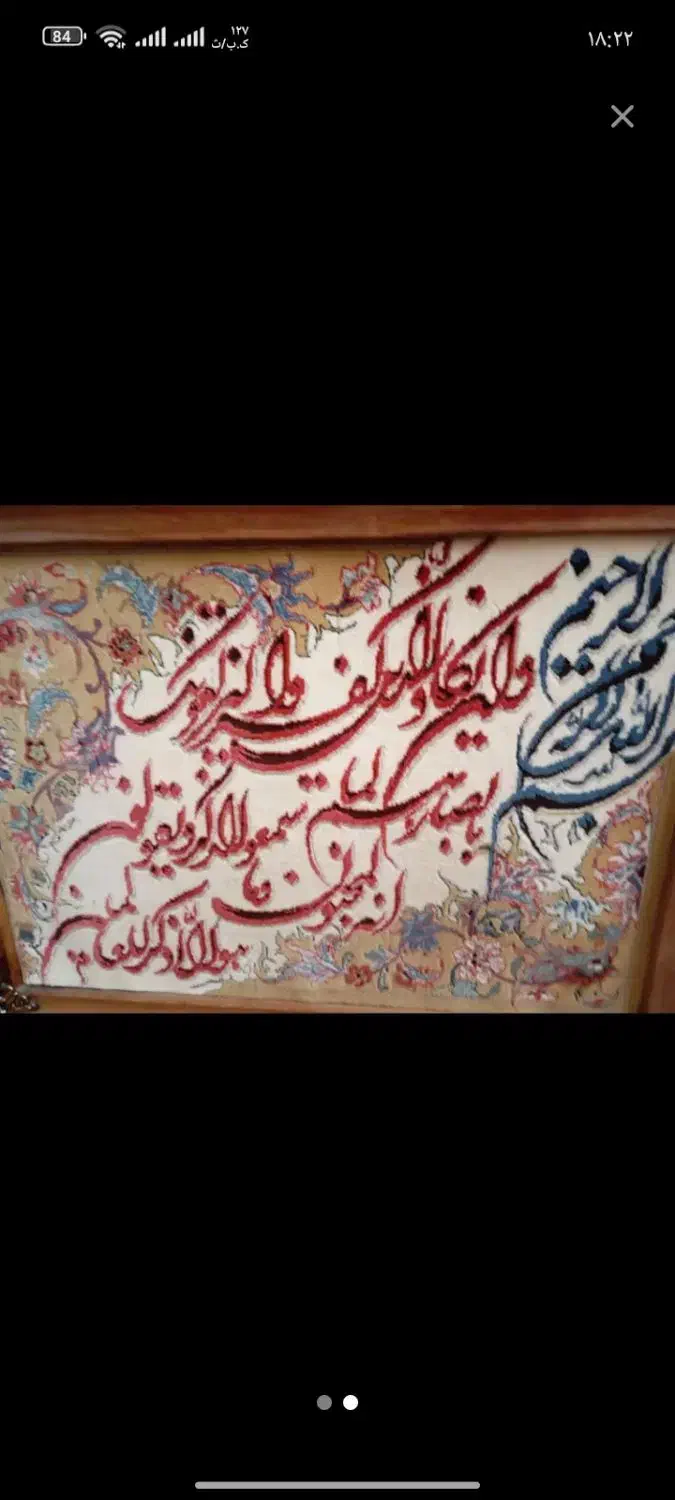 ۱۸:۲۲
۱۲۷
ک.ب/ث
84
بسم الله الرحمن الرحیم
وان یکاد الذین کفروا لیزلقونک
بابصارهم لما سمعوا الذکر و یقولون
انه لمجنون و ما هو الا ذکر للعالمین